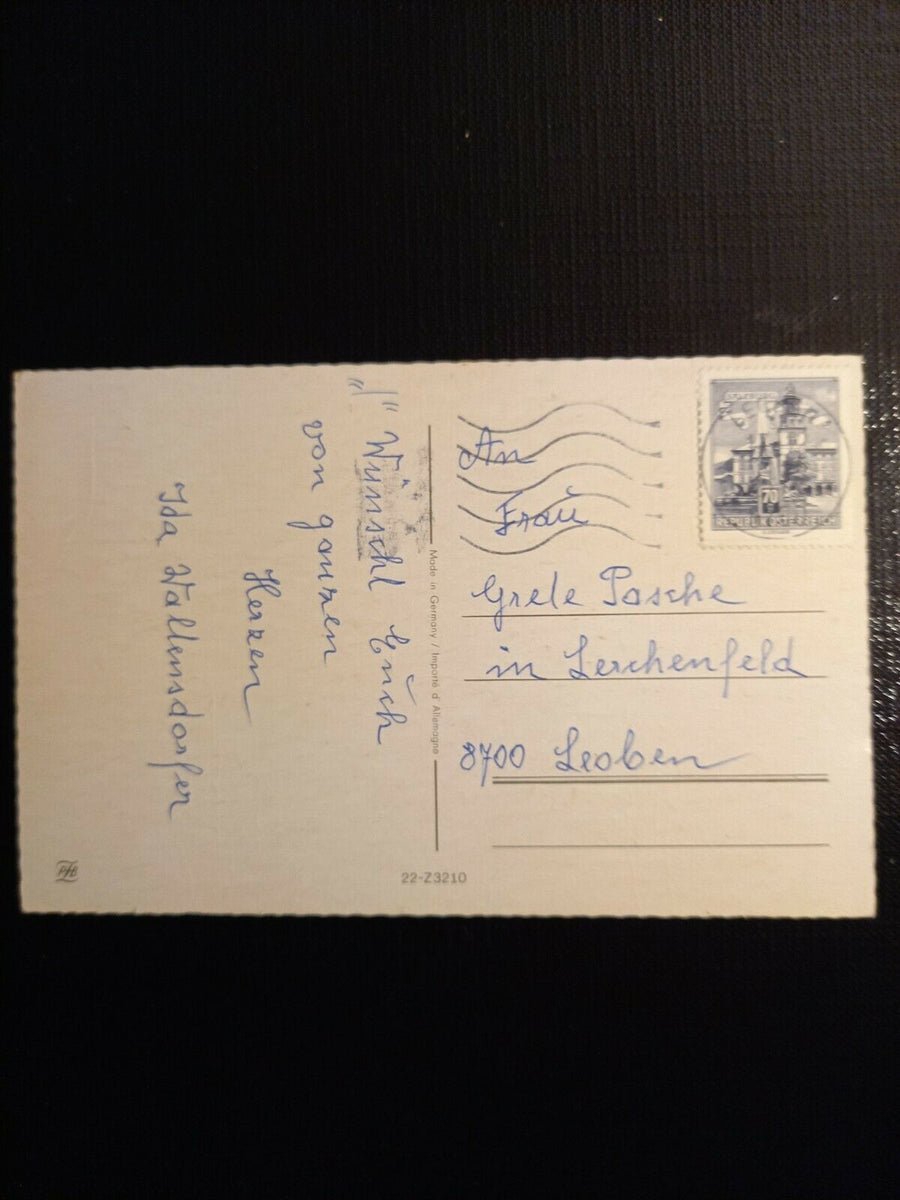 "/" Wünscht Euch
von ganzen
Herzen
Ida Wallensdorfer
Made in Germany / Importé d'Allemagne
22-Z3210
PHB
70
REPUBLIK ÖSTERREICH
An
Frau
Grete Pasche
in Lerchenfeld
8700 Leoben